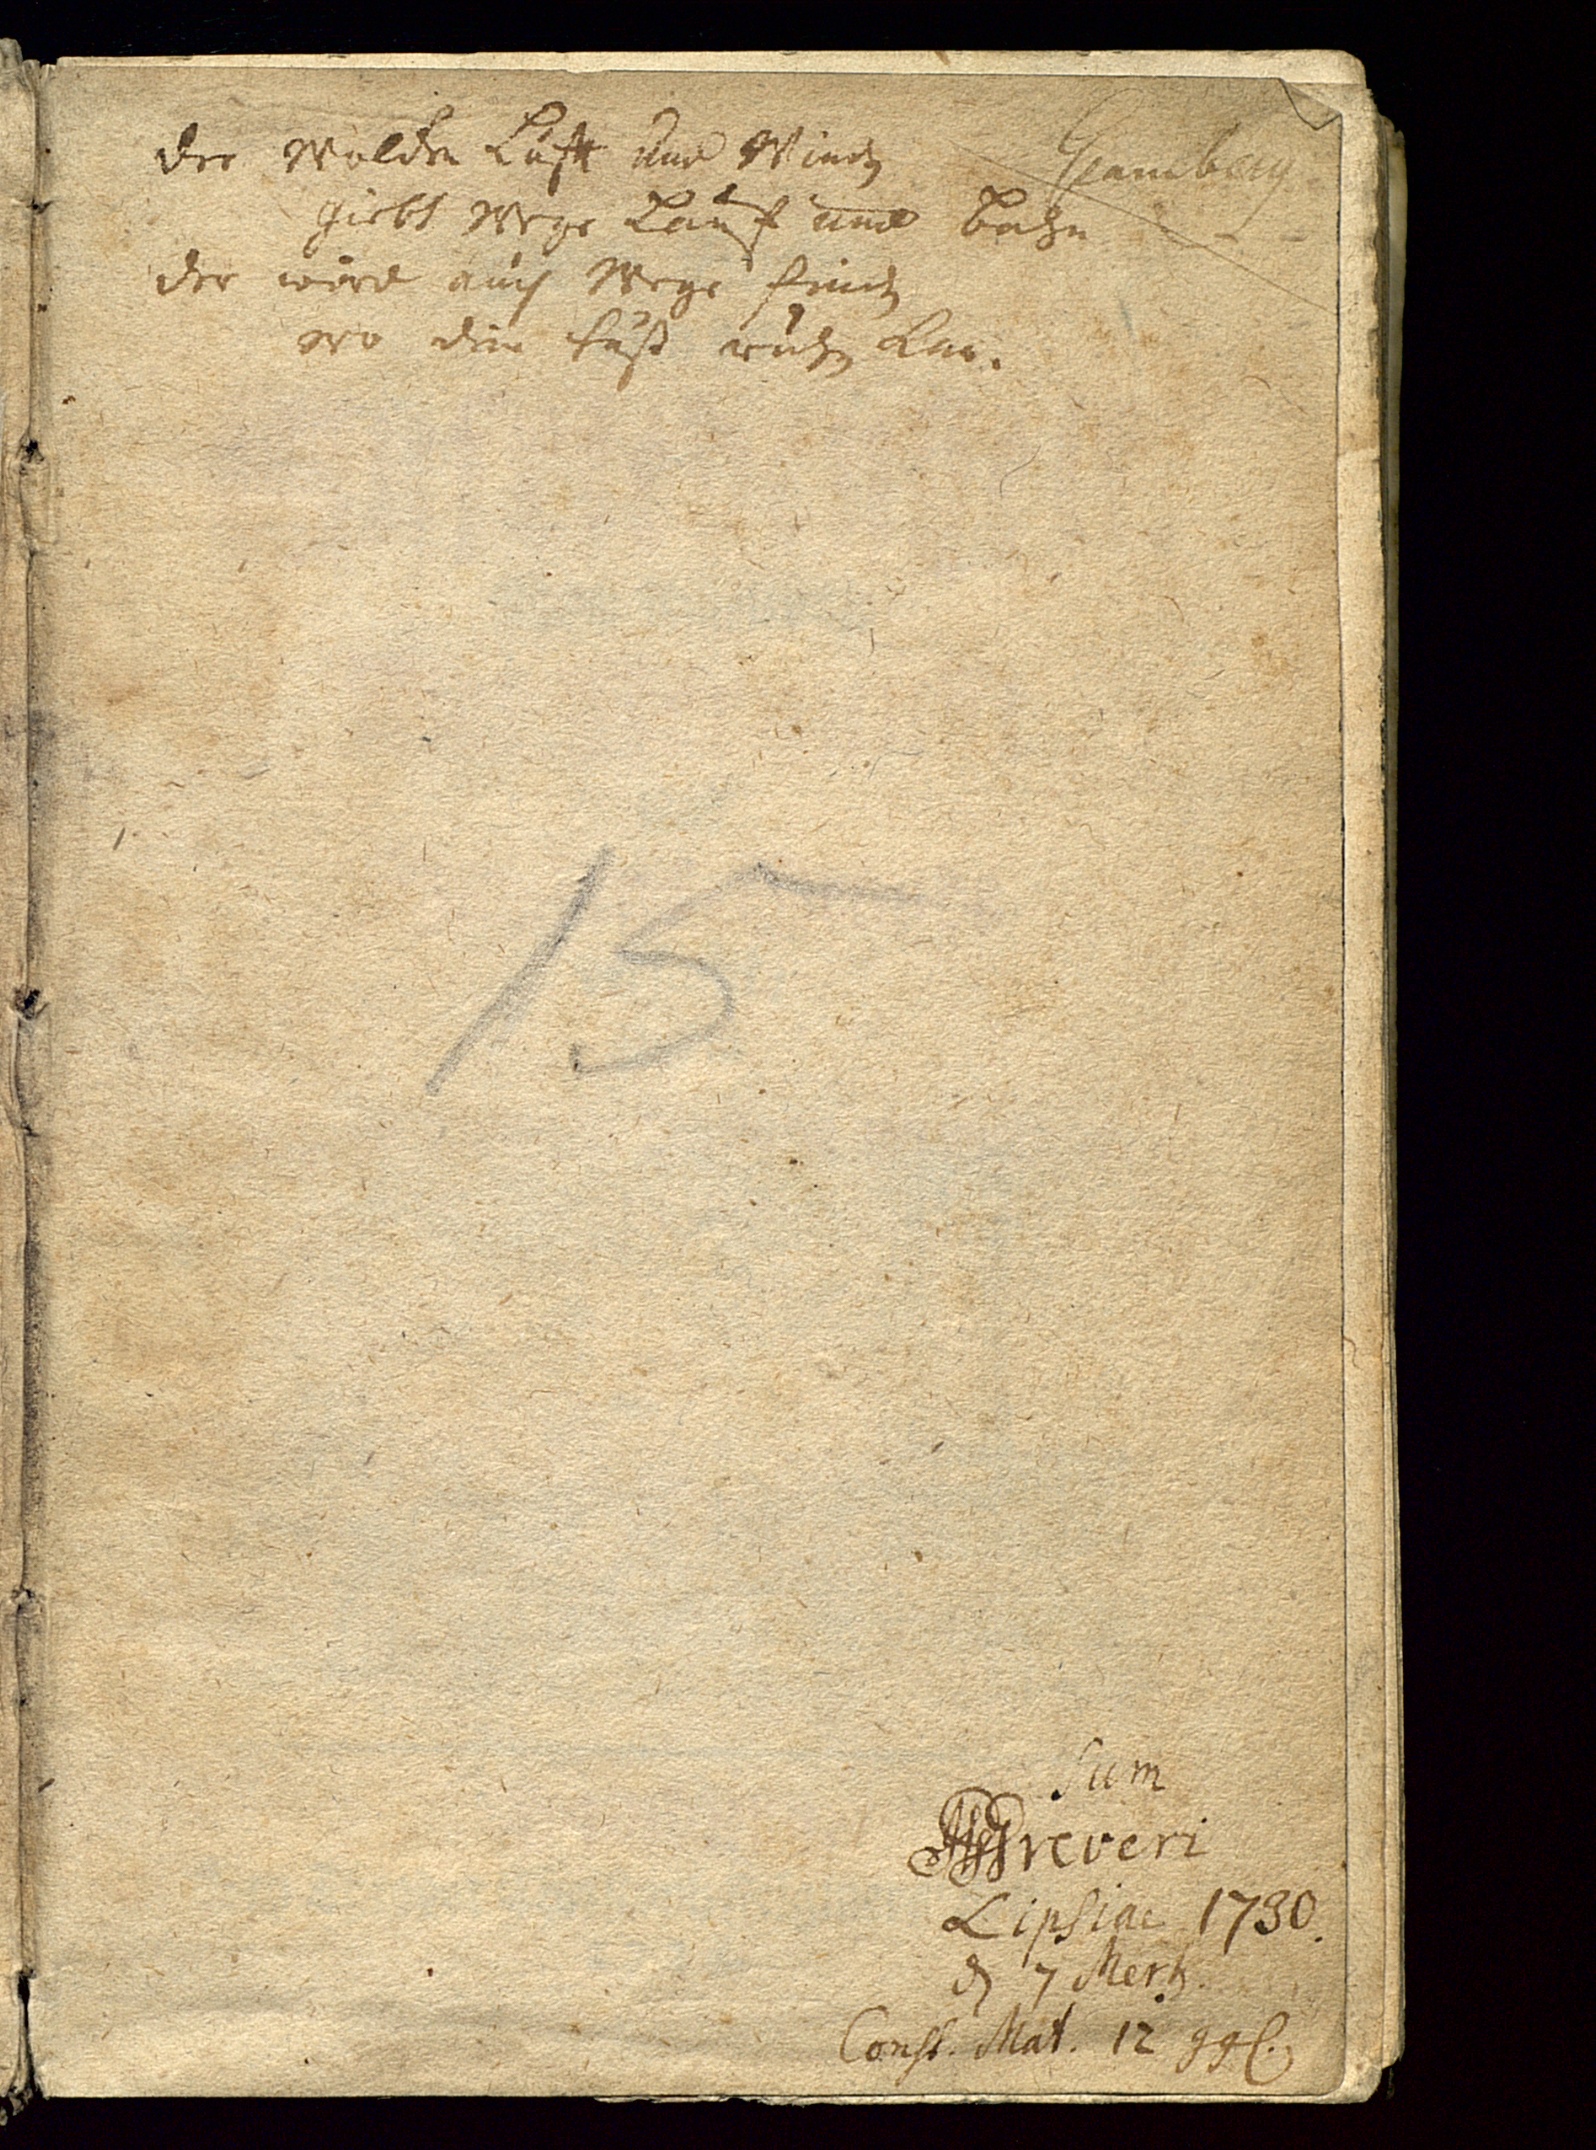 der Wolcken Luft und Winden
giebt Wege Lauf und bahn
der wird auch Wege finden
wo dein fuß ruhen kan.
15
Sum
Lipsiae 1730.
d. 7 Mertz.
Const. Mat. 12 ggl.